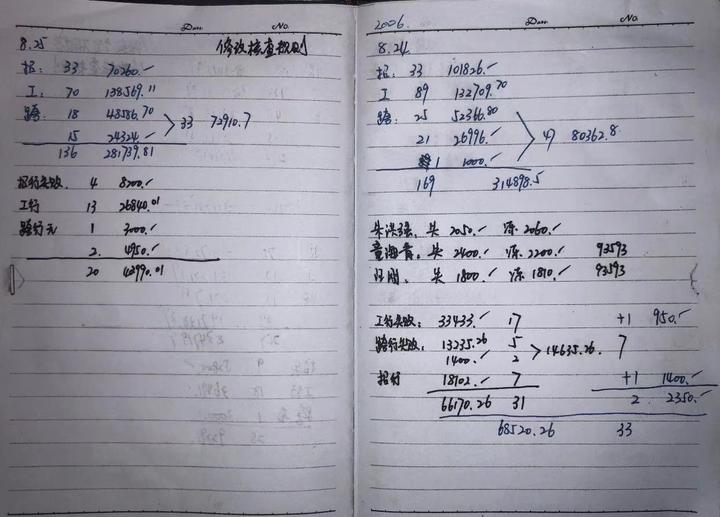 Date. No.
8.25 修改核查规则
招: 33 70260.-
工: 70 138569.11
跨: 18 48586.70
15 24324.- > 33 72910.7
136 281739.81
招行失败. 4 8200.-
工行 13 26840.01
跨行无 1 3000.-
2. 4950.-
20 42990.01
2006. Date. No.
8.24
招: 33 101826.-
工 89 132709.70
跨: 25 52366.80
21 26996.- > 47 80362.8
1 1000.-
169 314898.5
朱洪强. 失 2050.- 添. 2060.-
童海青. 失 2400.- 添. 2200.- 93593
汪刚. 失 1800.- 添 1810.- 93593
工行失败: 33433.- 17 +1 950.-
跨行失败: 13235.26 5
1400.- 2 > 14635.26. 7
招行 18102.- 7 +1 1400.-
66170.26 31 2. 2350.-
68520.26 33